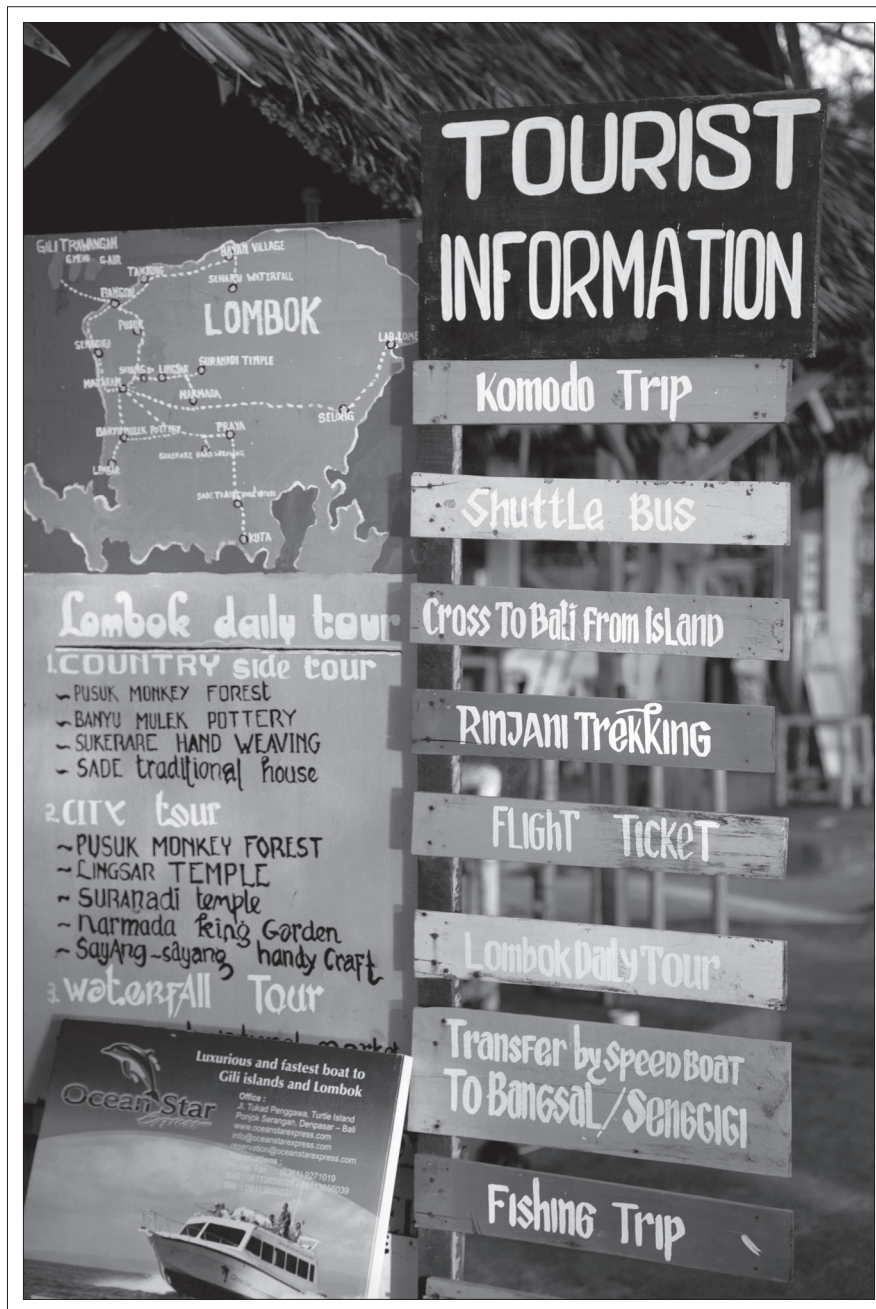 TOURIST
INFORMATION
Komodo Trip
Shuttle Bus
Cross To Bali From Island
Rinjani Trekking
Flight Ticket
Lombok Daily Tour
Transfer by Speed Boat
To Bangsal/Senggigi
Fishing Trip
GILI TRAWANGAN
G.MENO G.AIR
BAYAN VILLAGE
TANJUNG
SENARU WATERFALL
BANGSAL
LOMBOK
PUSUK
SENGGIGI
LINGSAR
SURANADI TEMPLE
MATARAM
NARMADA
SELONG
BANYUMULEK POTTERY
PRAYA
SUKERARE HAND WEAVING
LEMBAR
SADE TRADITIONAL HOUSE
KUTA
Lombok daily tour
1.COUNTRY side tour
~ PUSUK MONKEY FOREST
~ BANYU MULEK POTTERY
~ SUKERARE HAND WEAVING
~ SADE traditional house
2.CITY tour
~ PUSUK MONKEY FOREST
~ LINGSAR TEMPLE
~ SURANadi temple
~ Narmada king Garden
~ SayAng-sayang handy Craft
3.waterfAll Tour
market
Luxurious and fastest boat to
Gili islands and Lombok
Ocean Star
Office :
Jl. Tukad Penggawa, Turtle Island
Ponjok Serangan, Denpasar – Bali
www.oceanstarexpress.com
info@oceanstarexpress.com
reservation@oceanstarexpress.com